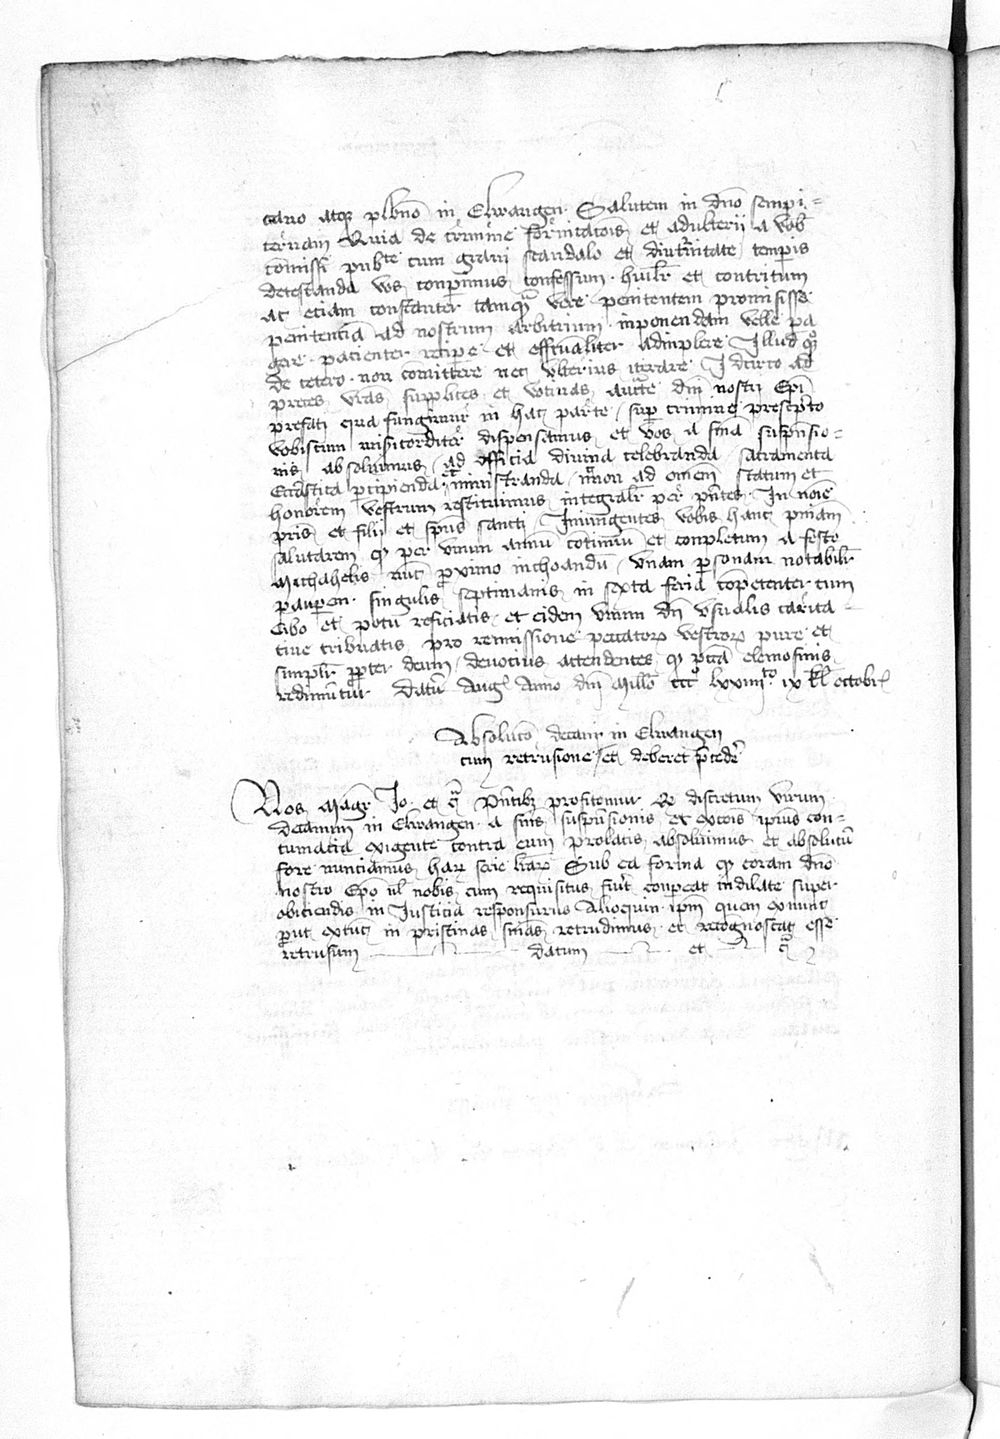 cano atq plbno in Elwangen Salutem in dno sempi=
ternam Quia de crimine fornicatois et adulterii a vob
comissi pubce cum gravi scandalo et diuturnitate tempis
detestanda vos conperimus confessum humilr et contritum
ac etiam constanter tamqm vere penitentem promisisse
penitencia ad nostrum arbitrium inponendam velle pa
gere pacienter recipe et effectualiter adinplere Illud qz
de cetero non comittere nec ulterius iterare Idcirco ad
preces vras supplices et votivas aucte dni nostri Epi
prefati qua fungimur in hac parte sup crimine prescripto
vobiscum misicorditer dispensamus et vos a sma suspensio=
nis absolvimus ad officia divina celebranda sacramenta
Eccastica pcipienda et ministranda ad omem statum et
honorem vestrum restituimus integralr per pntes In noie
pris et filij et spus sancti Iniungentes vobis hanc pniam
salutarem q per unum annu cotinuu et conpletum a festo
Michahelis nuc proximo inchoandu unam personam notabilr
pauperem singulis septimanis in sexta feria competenter cum
cibo et potu reficiatis et eidem unum dn usualis carita=
tive tribuatis pro remissione peccatorum vestrorum pure et
simplr propter deum devocius attendentes q pcca elemosinis
redimuntur Datu Aug Anno dni Millo ccco lxxiiiito ix kl octobr
Absoluco decani in Elwangen
cum retrusione et deberet pcede
Nos Magr Jo et c pntibz profitemur q discretum virum
decanum in Elwangen a sniis suspensionis et excois ipius con=
tumacia exigente contra eum prolatis absolvimus et absolutu
fore nunciamus har serie lrar Sub ea forma q coram dno
nostro Epo ul nobis cum requisitus fuit conpeat indilate super
obiciendis in Justicia responsurus Alioquin ipm quem exnunc
put extuc in pristinas snias retrudimus et recognoscat esse
retrusum datum et c